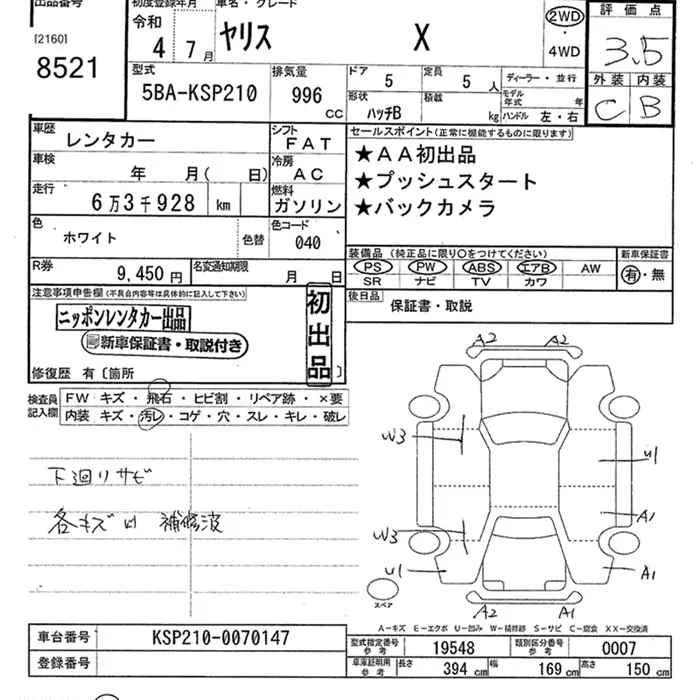 出品番号
[2160]
8521
初度登録年月
令和
4 7月
車名・グレード
ヤリス X
2WD
・
4WD
評価点
3.5
外装 内装
C B
型式
5BA-KSP210
排気量
996
CC
ドア
5
定員
5人
形状
ハッチB
積載
kg
ディーラー・並行
モデル年式 年
ハンドル 左・右
車歴
レンタカー
シフト
FAT
車検
年 月( 日)
冷房
AC
走行
6万3千928 km
燃料
ガソリン
色
ホワイト
色替
色コード
040
R券
9,450円
名変通知期限
月 日
セールスポイント(正常に機能するものに限ります)
★AA初出品
★プッシュスタート
★バックカメラ
装備品(純正品に限り○をつけてください)
PS PW ABS エアB AW
SR ナビ TV カワ
新車保証書
有・無
後日品
保証書・取説
注意事項申告欄(不具合内容等は具体的に記入して下さい)
ニッポンレンタカー出品
新車保証書・取説付き
初出品
修復歴 有〔箇所 〕
検査員記入欄
FW キズ・飛石・ヒビ割・リペア跡・×要
内装 キズ・汚レ・コゲ・穴・スレ・キレ・破レ
下廻りサビ
各キズ U1 補修波
A2 A2
W3
U1
A1
W3
U1
A1
A2 A1
スペア
A－キズ E－エクボ U－凹み W－補修跡 S－サビ C－腐食 XX－交換済
車台番号
KSP210-0070147
登録番号
型式指定番号 参考
19548
類別区分番号 参考
0007
車庫証明用 参考
長さ 394 cm
幅 169 cm
高さ 150 cm